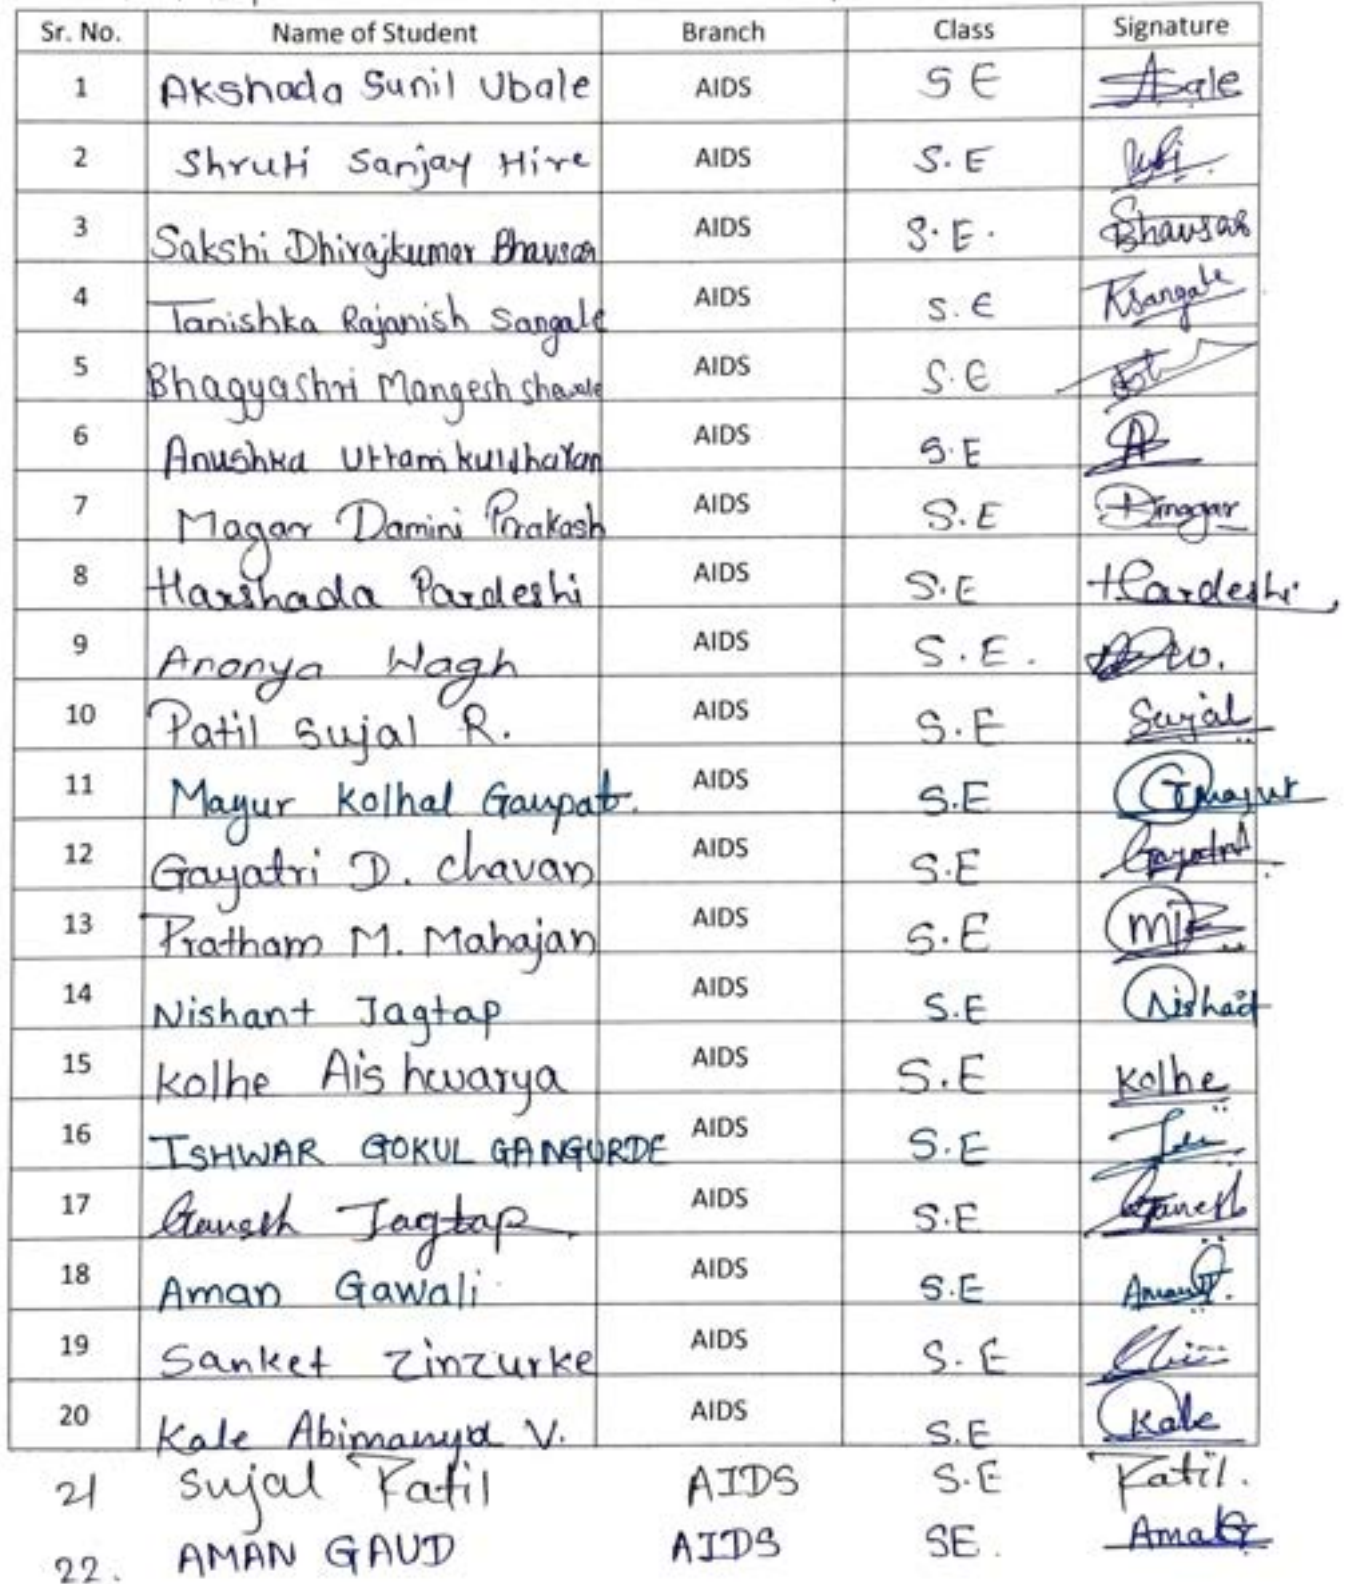 Sr. No. Name of Student Branch Class Signature
1 Akshada Sunil Ubale AIDS S E
2 Shruti Sanjay Hire AIDS S.E
3 Sakshi Dhirajkumar Bhavsar AIDS S.E. Bhavsar
4 Tanishka Rajanish Sangale AIDS S.E Rsangale
5 Bhagyashri Mangesh AIDS S.E
6 Anushka Uttam AIDS S.E A
7 Magar Damini Prakash AIDS S.E Dmagar
8 Harshada Pardeshi AIDS S.E HPardeshi
9 Ananya Wagh AIDS S.E.
10 Patil Sujal R. AIDS S.E Sujal
11 Mayur Kolhal Ganpat. AIDS S.E
12 Gayatri D. Chavan AIDS S.E Gayatri
13 Pratham M. Mahajan AIDS S.E
14 Nishant Jagtap AIDS S.E Nishant
15 Kolhe Aishwarya AIDS S.E Kolhe
16 ISHWAR GOKUL GANGURDE AIDS S.E
17 Ganesh Jagtap AIDS S.E Ganesh
18 Aman Gawali AIDS S.E
19 Sanket Zinzurke AIDS S.E
20 Kale Abimanyu V. AIDS S.E Kale
21 Sujal Patil AIDS S.E Patil.
22. AMAN GAUD AIDS SE.